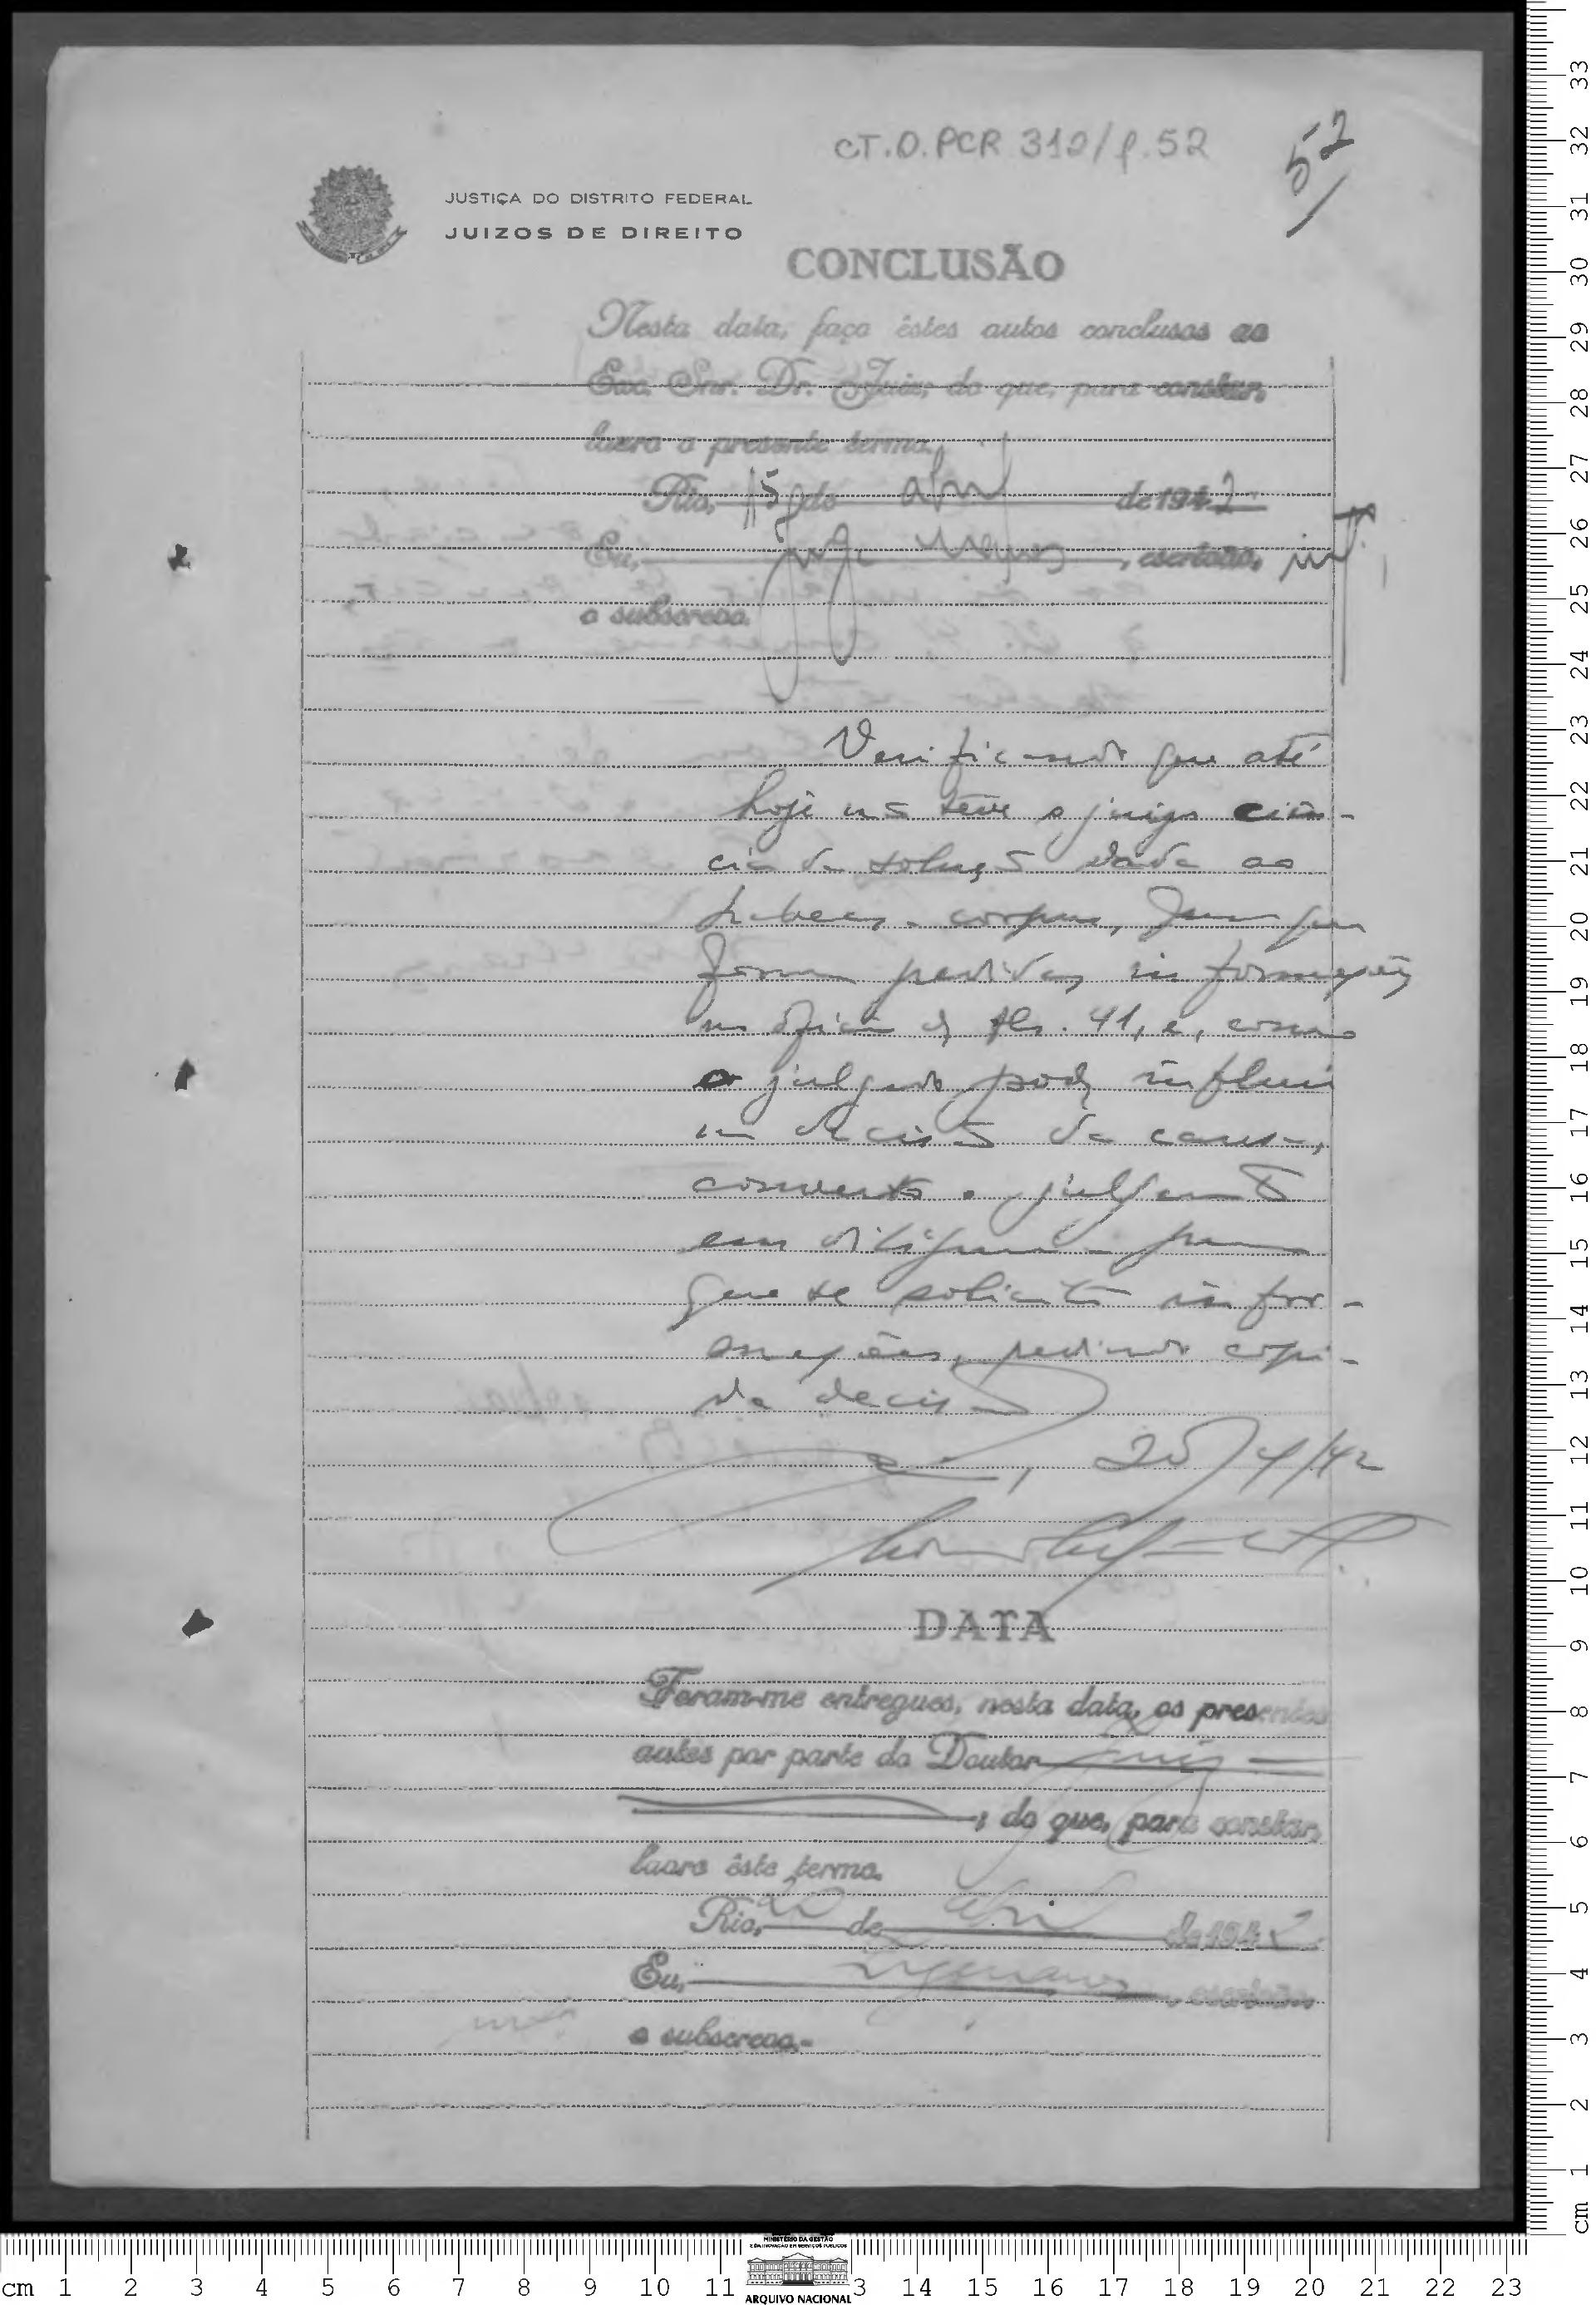 CT.O.PCR 312/f.52
52
JUSTIÇA DO DISTRITO FEDERAL
JUIZOS DE DIREITO
CONCLUSÃO
Nesta data, faço êstes autos conclusos ao
Exc. Snr. Dr. Juiz, do que, para constar,
lavro o presente termo.
Rio, 15 do abril de 1942.
Eu, Jorge , escrivão, int.
o subscrevo.
Verificando que até
hoje não teve o juizo ciên-
cia da solução dada ao
habeas-corpus, para que
foram pedidas informações
no oficio de fls. 41, e, como
o julgado pode influir
na decisão da causa,
converto o julgamento
em diligencia para
que se solicite infor-
mações, pedindo copia
da decisão
, 20/4/42
DATA
Foram-me entregues, nesta data, os presentes
autos por parte do Doutor Juiz
, do que, para constar,
lavro êste termo.
Rio, 20 de abril de 1942.
Eu, , escrivão
o subscrevo.-
cm 1 2 3 4 5 6 7 8 9 10 11 3 14 15 16 17 18 19 20 21 22 23
MINISTÉRIO DA GESTÃO
E DA INOVAÇÃO EM SERVIÇOS PÚBLICOS
ARQUIVO NACIONAL
cm 1 2 3 4 5 6 7 8 9 10 11 12 13 14 15 16 17 18 19 20 21 22 23 24 25 26 27 28 29 30 31 32 33